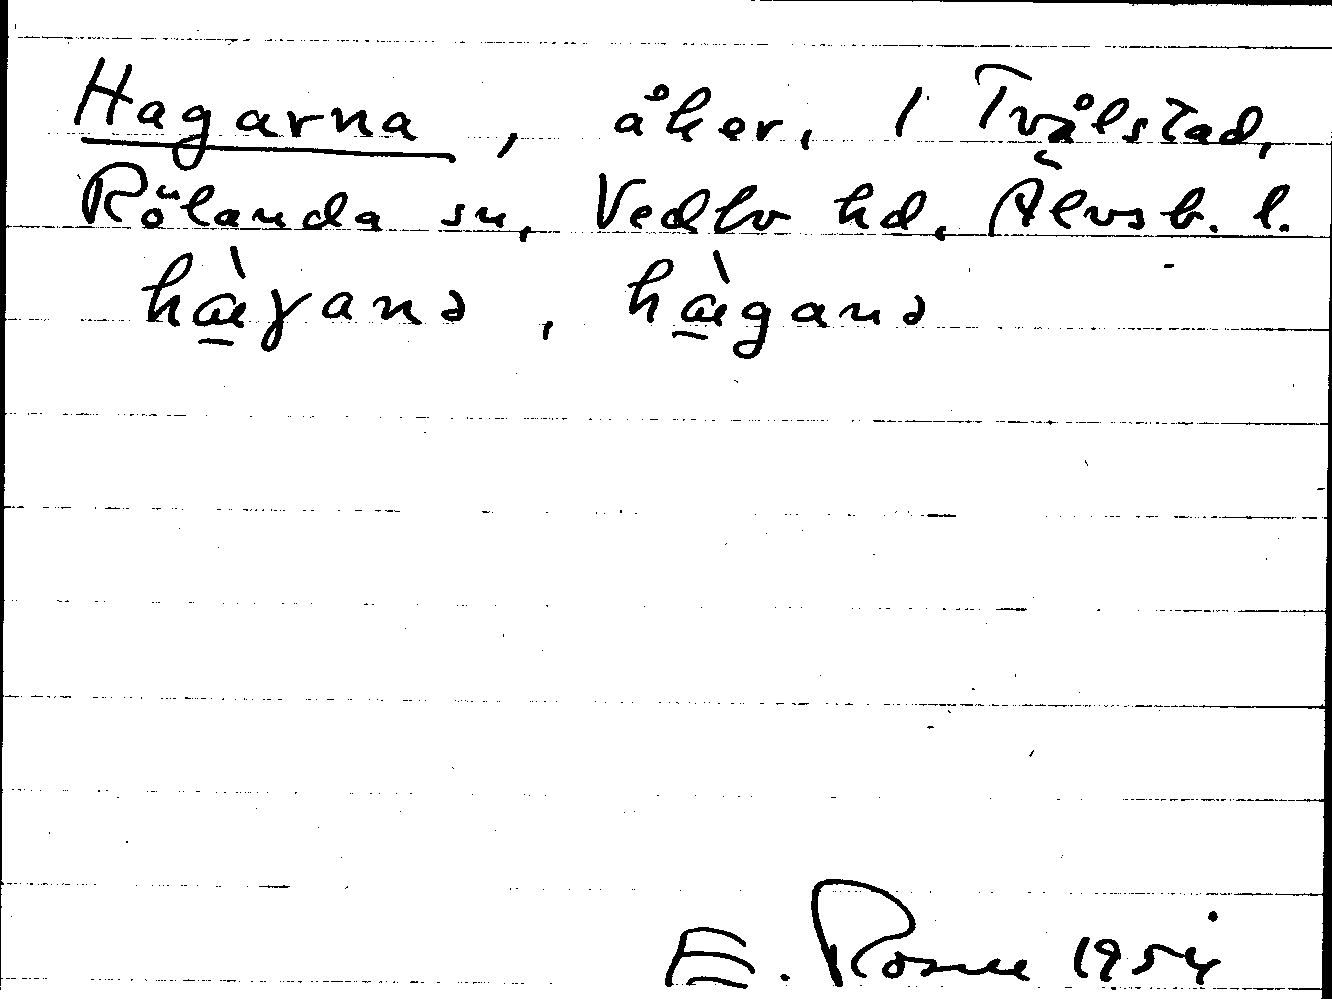 Hagarna, åker, 1 Tvålstad,
Rölanda sn, Vedbo hd, Älvsb. l.
hàɣanə, hàganə
E. Rosne 1954